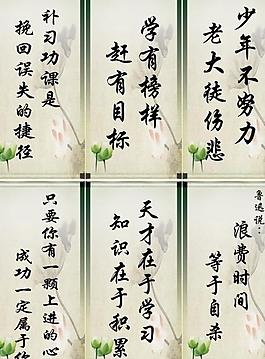 少年不努力
老大徒伤悲
学有榜样
赶有目标
补习功课是
挽回误失的捷径
鲁迅说：
浪费时间
等于自杀
天才在于学习
知识在于积累
只要你有一颗上进的心
成功一定属于你